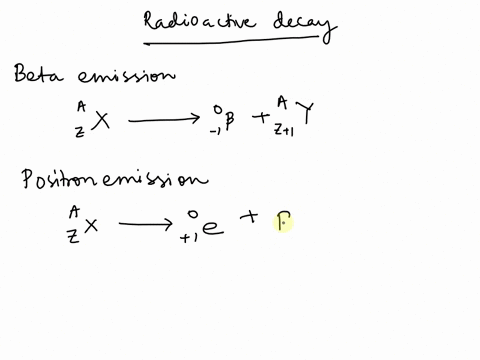 Radioactive decay
Beta emission
ᴬ_Z X ⟶ ⁰_-1 β + ᴬ_Z+1 Y
Positron emission
ᴬ_Z X ⟶ ⁰_+1 e +